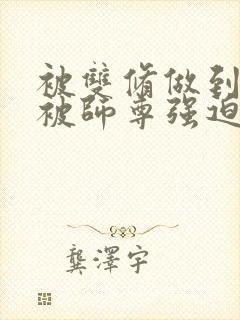 被雙脩做到
被師尊强迫
龔澤宇